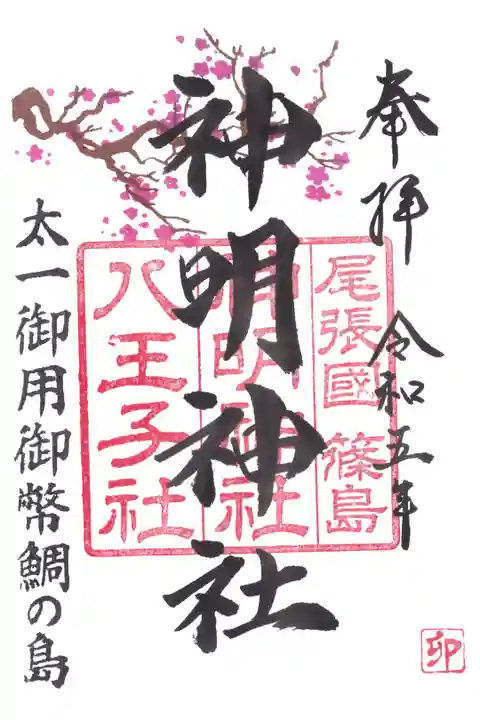 奉拝 令和五年
神明神社
太一御用御幣鯛の島
尾張國 篠島
神明神社
八王子社
卯